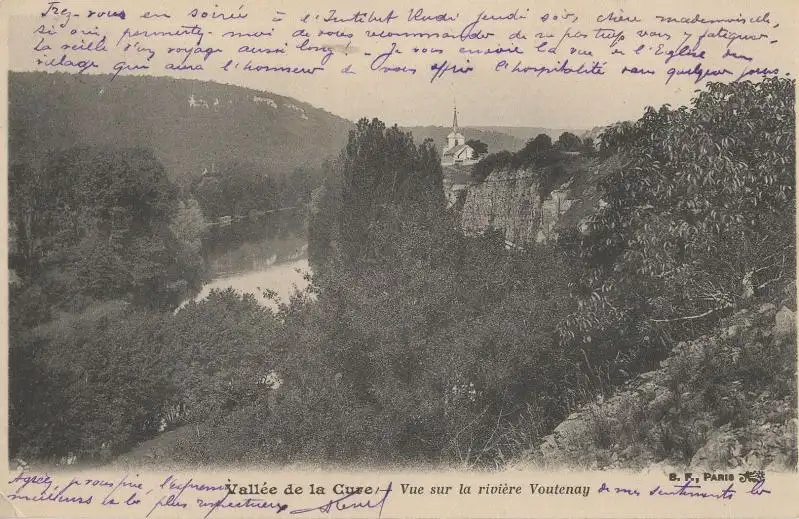 Irez-vous en soirée à l'Institut Rudi jeudi soir, chère mademoiselle,
si oui, permettez-moi de vous recommander de ne pas trop vous y fatiguer
la veille d'un voyage aussi long! - Je vous envoie la vue de l'Église du
village qui aura l'honneur de vous offrir l'hospitalité pour quelques jours.
Agréez, je vous prie, l'expression
Vallée de la Cure - Vue sur la rivière Voutenay
B. F., PARIS
de mes sentiments les
meilleurs et les plus respectueux